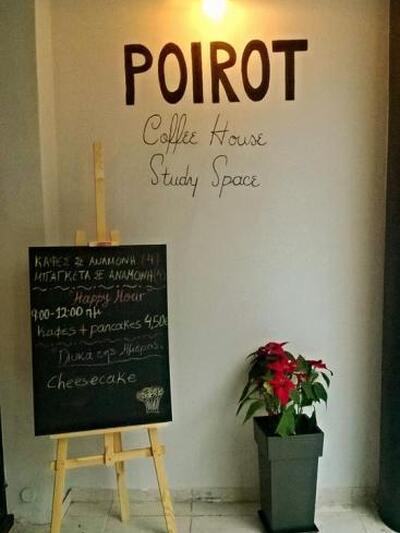 POIROT
Coffee House
Study Space
ΚΑΦΕΣ ΣΕ ΑΝΑΜΟΝΗ (4)
ΜΠΑΓΚΕΤΑ ΣΕ ΑΝΑΜΟΝΗ
Happy Hour
9:00-12:00 πμ
Καφες + pancakes 4,50€
Γλυκά της Ημέρας
Cheesecake